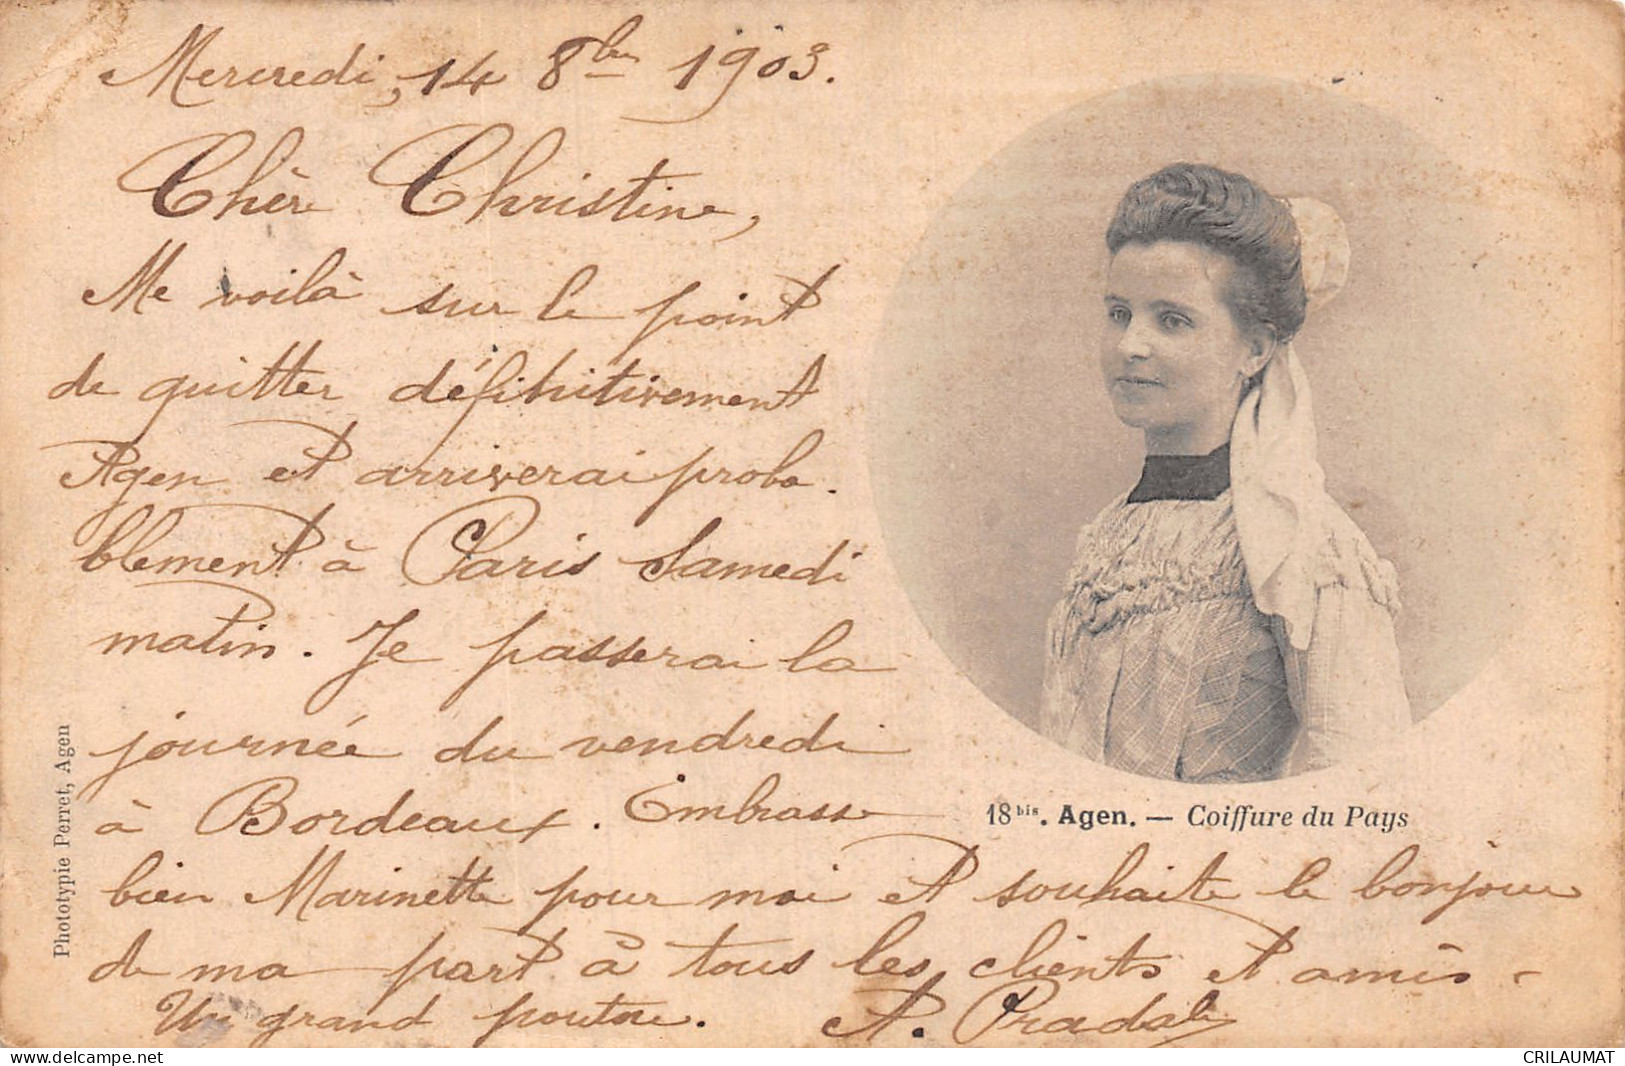 Mercredi, 14 8bre 1903.
Chère Christine,
Me voilà sur le point
de quitter définitivement
Agen et arriverai proba-
blement à Paris Samedi
matin. Je passerai la
journée du vendredi
à Bordeaux. Embrasse
bien Marinette pour moi et souhaite le bonjour
de ma part à tous les clients et amis.
Un grand poutou. A. Pradal
18bis. Agen. — Coiffure du Pays
Phototypie Perret, Agen
CRILAUMAT